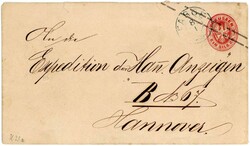 An die
Expedition der Han. Anzeigen
B. No 67.
Hannover.